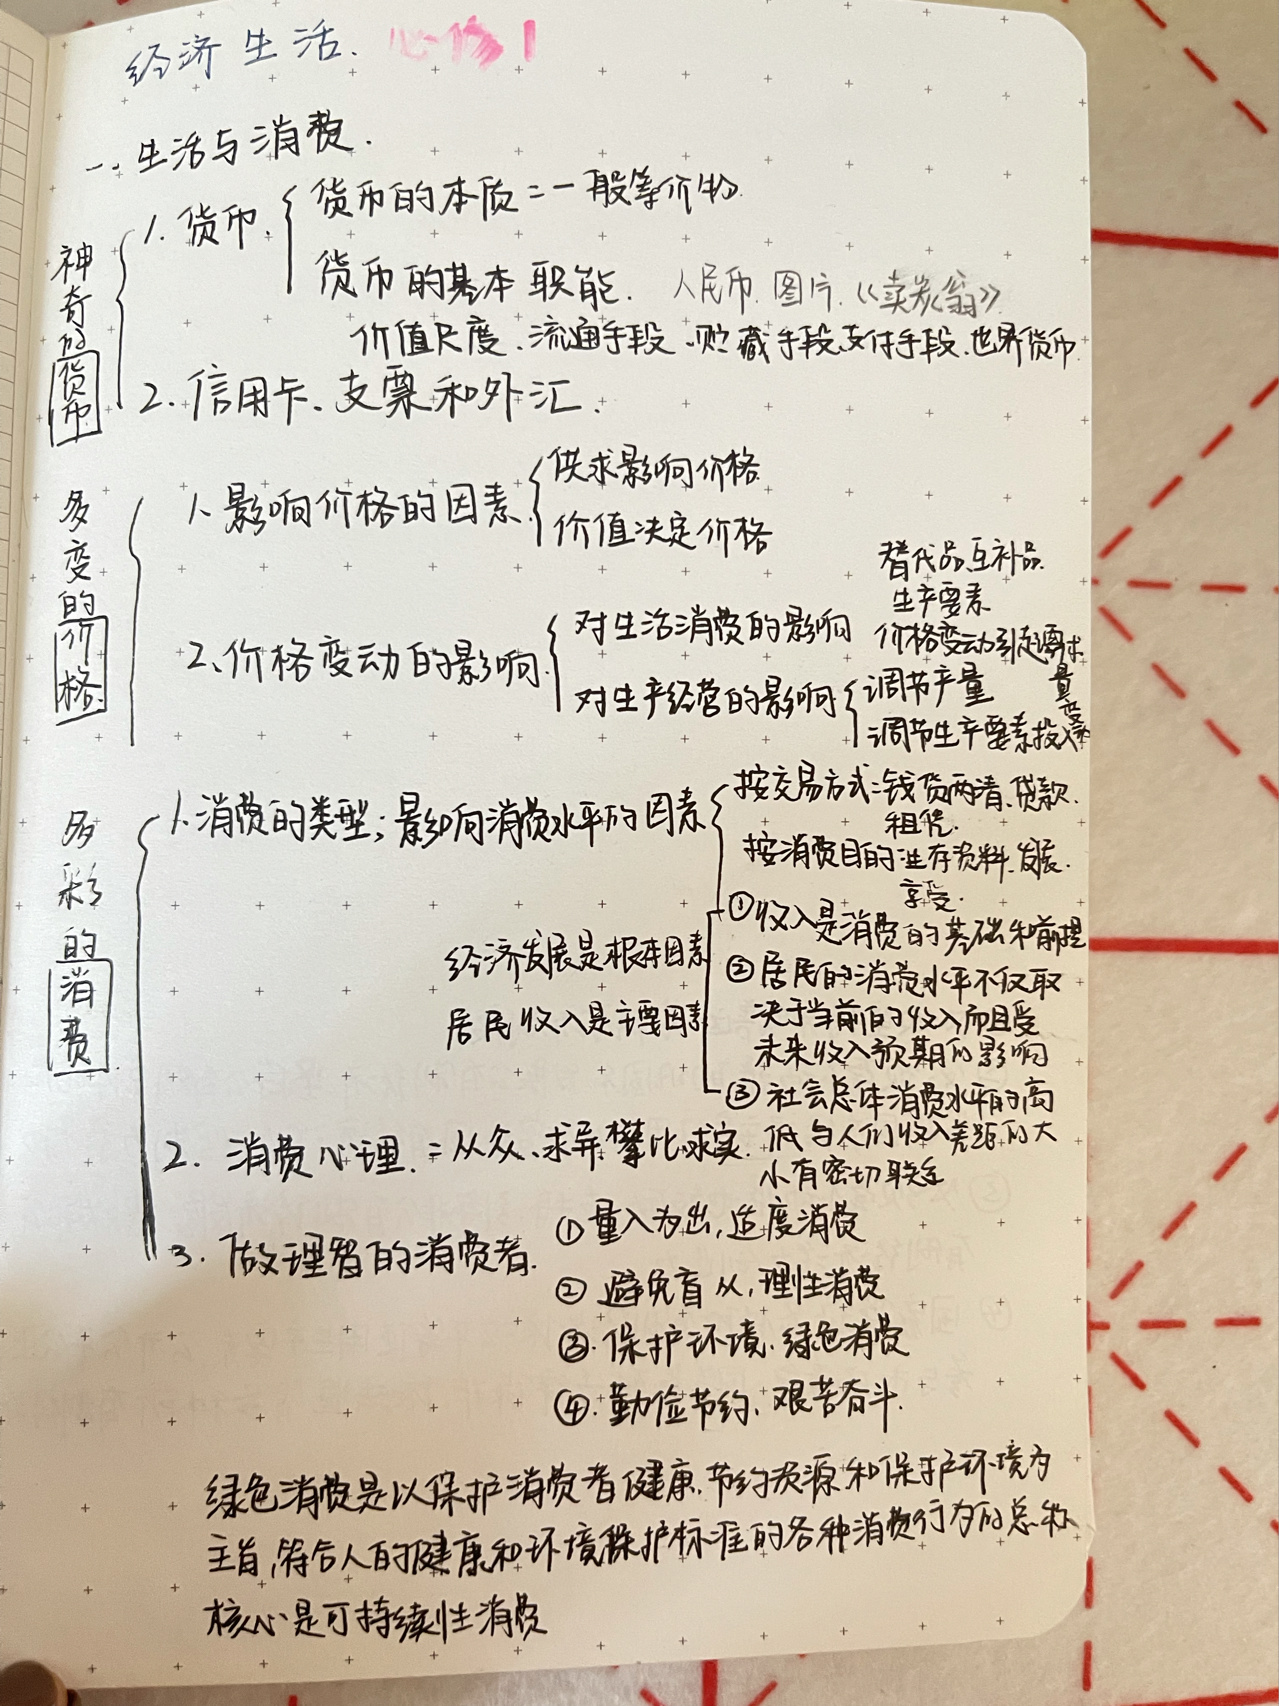 经济生活. 必修1
一. 生活与消费.
神奇的货币
1. 货币.
货币的本质=一般等价物.
货币的基本职能. 人民币. 图片.《卖炭翁》
价值尺度、流通手段、贮藏手段、支付手段、世界货币
2. 信用卡、支票和外汇.
多变的价格
1、影响价格的因素
供求影响价格
价值决定价格
2、价格变动的影响.
对生活消费的影响
替代品、互补品.
生产要素
价格变动引起需求
量变动
对生产经营的影响
调节产量
调节生产要素投入
多彩的消费
1、消费的类型; 影响消费水平的因素
按交易方式:钱货两清、贷款.
租凭.
按消费目的:生存资料、发展.
享受.
经济发展是根本因素
居民收入是主要因素
①收入是消费的基础和前提
②居民的消费水平不仅取
决于当前的收入而且受
未来收入预期的影响
③社会总体消费水平的高
低与人们收入差距的大
小有密切联系
2. 消费心理. =从众、求异攀比求实.
3. 做理智的消费者.
①量入为出, 适度消费
②避免盲从, 理性消费
③.保护环境、绿色消费
④.勤俭节约、艰苦奋斗.
绿色消费是以保护消费者健康、节约资源和保护环境为
主旨, 符合人的健康和环境保护标准的各种消费行为的总称
核心是可持续性消费